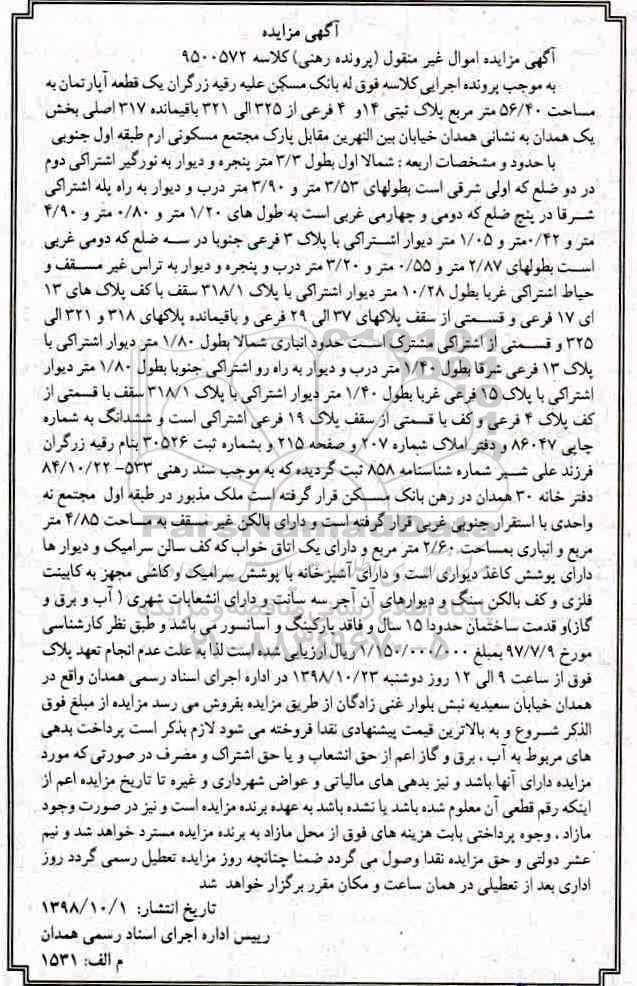 آگهی مزایده
آگهی مزایده اموال غیر منقول (پرونده رهنی) کلاسه ۹۵۰۰۵۷۲
به موجب پرونده اجرایی کلاسه فوق له بانک مسکن علیه رقیه زرگران یک قطعه آپارتمان به
مساحت ۵۶/۴۰ متر مربع پلاک ثبتی ۱۴ و ۴ فرعی از ۳۲۵ الی ۳۲۱ باقیمانده ۳۱۷ اصلی بخش
یک همدان به نشانی همدان خیابان بین النهرین مقابل پارک مجتمع مسکونی ارم طبقه اول جنوبی
با حدود و مشخصات اربعه : شمالا اول بطول ۳/۳ متر پنجره و دیوار به نورگیر اشتراکی دوم
در دو ضلع که اولی شرقی است بطولهای ۳/۵۳ متر و ۳/۹۰ متر درب و دیوار به راه پله اشتراکی
شرقا در پنج ضلع که دومی و چهارمی غربی است به طول های ۱/۲۰ متر و ۰/۸۰ متر و ۴/۹۰
متر و ۰/۴۲ متر و ۱/۰۵ متر دیوار اشتراکی با پلاک ۳ فرعی جنوبا در سه ضلع که دومی غربی
است بطولهای ۲/۸۷ متر و ۰/۵۵ متر و ۳/۲۰ متر درب و پنجره و دیوار به تراس غیر مسقف و
حیاط اشتراکی غربا بطول ۱۰/۲۸ متر دیوار اشتراکی با پلاک ۳۱۸/۱ سقف با کف پلاک های ۱۳
ای ۱۷ فرعی و قسمتی از سقف پلاکهای ۳۷ الی ۲۹ فرعی و باقیمانده پلاکهای ۳۱۸ و ۳۲۱ الی
۳۲۵ و قسمتی از اشتراکی مشترک است حدود انباری شمالا بطول ۱/۸۰ متر دیوار اشتراکی با
پلاک ۱۳ فرعی شرقا بطول ۱/۴۰ متر درب و دیوار به راه رو اشتراکی جنوبا بطول ۱/۸۰ متر دیوار
اشتراکی با پلاک ۱۵ فرعی غربا بطول ۱/۴۰ متر دیوار اشتراکی با پلاک ۳۱۸/۱ سقف با قسمتی از
کف پلاک ۴ فرعی و کف با قسمتی از سقف پلاک ۱۹ فرعی اشتراکی است و ششدانگ به شماره
چاپی ۸۶۰۴۷ و دفتر املاک شماره ۲۰۷ و صفحه ۲۱۵ و بشماره ثبت ۳۰۵۲۶ بنام رقیه زرگران
فرزند علی شیر شماره شناسنامه ۸۵۸ ثبت گردیده که به موجب سند رهنی ۵۳۳- ۸۴/۱۰/۲۲
دفتر خانه ۳۰ همدان در رهن بانک مسکن قرار گرفته است ملک مذبور در طبقه اول مجتمع نه
واحدی با استقرار جنوبی غربی قرار گرفته است و دارای بالکن غیر مسقف به مساحت ۴/۸۵ متر
مربع و انباری بمساحت ۲/۶۰ متر مربع و دارای یک اتاق خواب که کف سالن سرامیک و دیوار ها
دارای پوشش کاغذ دیواری است و دارای آشپزخانه با پوشش سرامیک و کاشی مجهز به کابینت
فلزی و کف بالکن سنگ و دیوارهای آن آجر سه سانت و دارای انشعابات شهری ( آب و برق و
گاز) و قدمت ساختمان حدودا ۱۵ سال و فاقد پارکینگ و آسانسور می باشد و طبق نظر کارشناسی
مورخ ۹۷/۷/۹ بمبلغ ۱/۱۵۰/۰۰۰/۰۰۰ ریال ارزیابی شده است لذا به علت عدم انجام تعهد پلاک
فوق از ساعت ۹ الی ۱۲ روز دوشنبه ۱۳۹۸/۱۰/۲۳ در اداره اجرای اسناد رسمی همدان واقع در
همدان خیابان سعیدیه نبش بلوار غنی زادگان از طریق مزایده بفروش می رسد مزایده از مبلغ فوق
الذکر شروع و به بالاترین قیمت پیشنهادی نقدا فروخته می شود لازم بذکر است پرداخت بدهی
های مربوط به آب ، برق و گاز اعم از حق انشعاب و یا حق اشتراک و مصرف در صورتی که مورد
مزایده دارای آنها باشد و نیز بدهی های مالیاتی و عوارض شهرداری و غیره تا تاریخ مزایده اعم از
اینکه رقم قطعی آن معلوم شده باشد یا نشده باشد به عهده برنده مزایده است و نیز در صورت وجود
مازاد ، وجوه پرداختی بابت هزینه های فوق از محل مازاد به برنده مزایده مسترد خواهد شد و نیم
عشر دولتی و حق مزایده نقدا وصول می گردد ضمنا چنانچه روز مزایده تعطیل رسمی گردد روز
اداری بعد از تعطیلی در همان ساعت و مکان مقرر برگزار خواهد شد
تاریخ انتشار: ۱۳۹۸/۱۰/۱
رییس اداره اجرای اسناد رسمی همدان
م الف: ۱۵۳۱
ParsNamadData